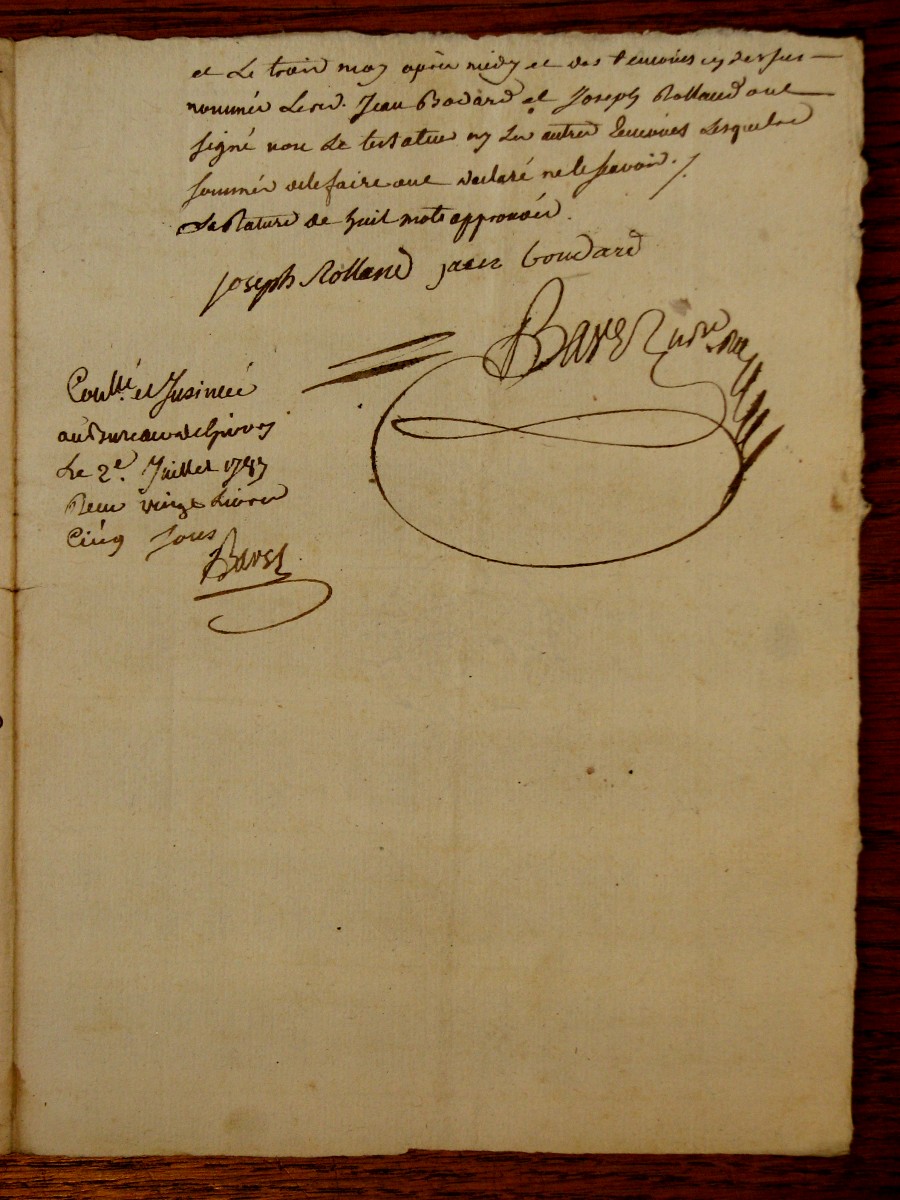 et Le trois may après midy et des temoins cy dessus
nommés Lesd. Jean Bodard et Joseph Rolland ont
signé non Le testateur ny Les autres temoins Lesquels de
sommés de le faire ont declaré ne le scavoir. /.
La Rature de huit mots approuvée.
joseph Rolland jean boudard
Baret
Con.llé et Insinué
au Bureau de Givors
Le 2.e Juillet 1787
Recu vingt Livres
Cinq sous
Baret